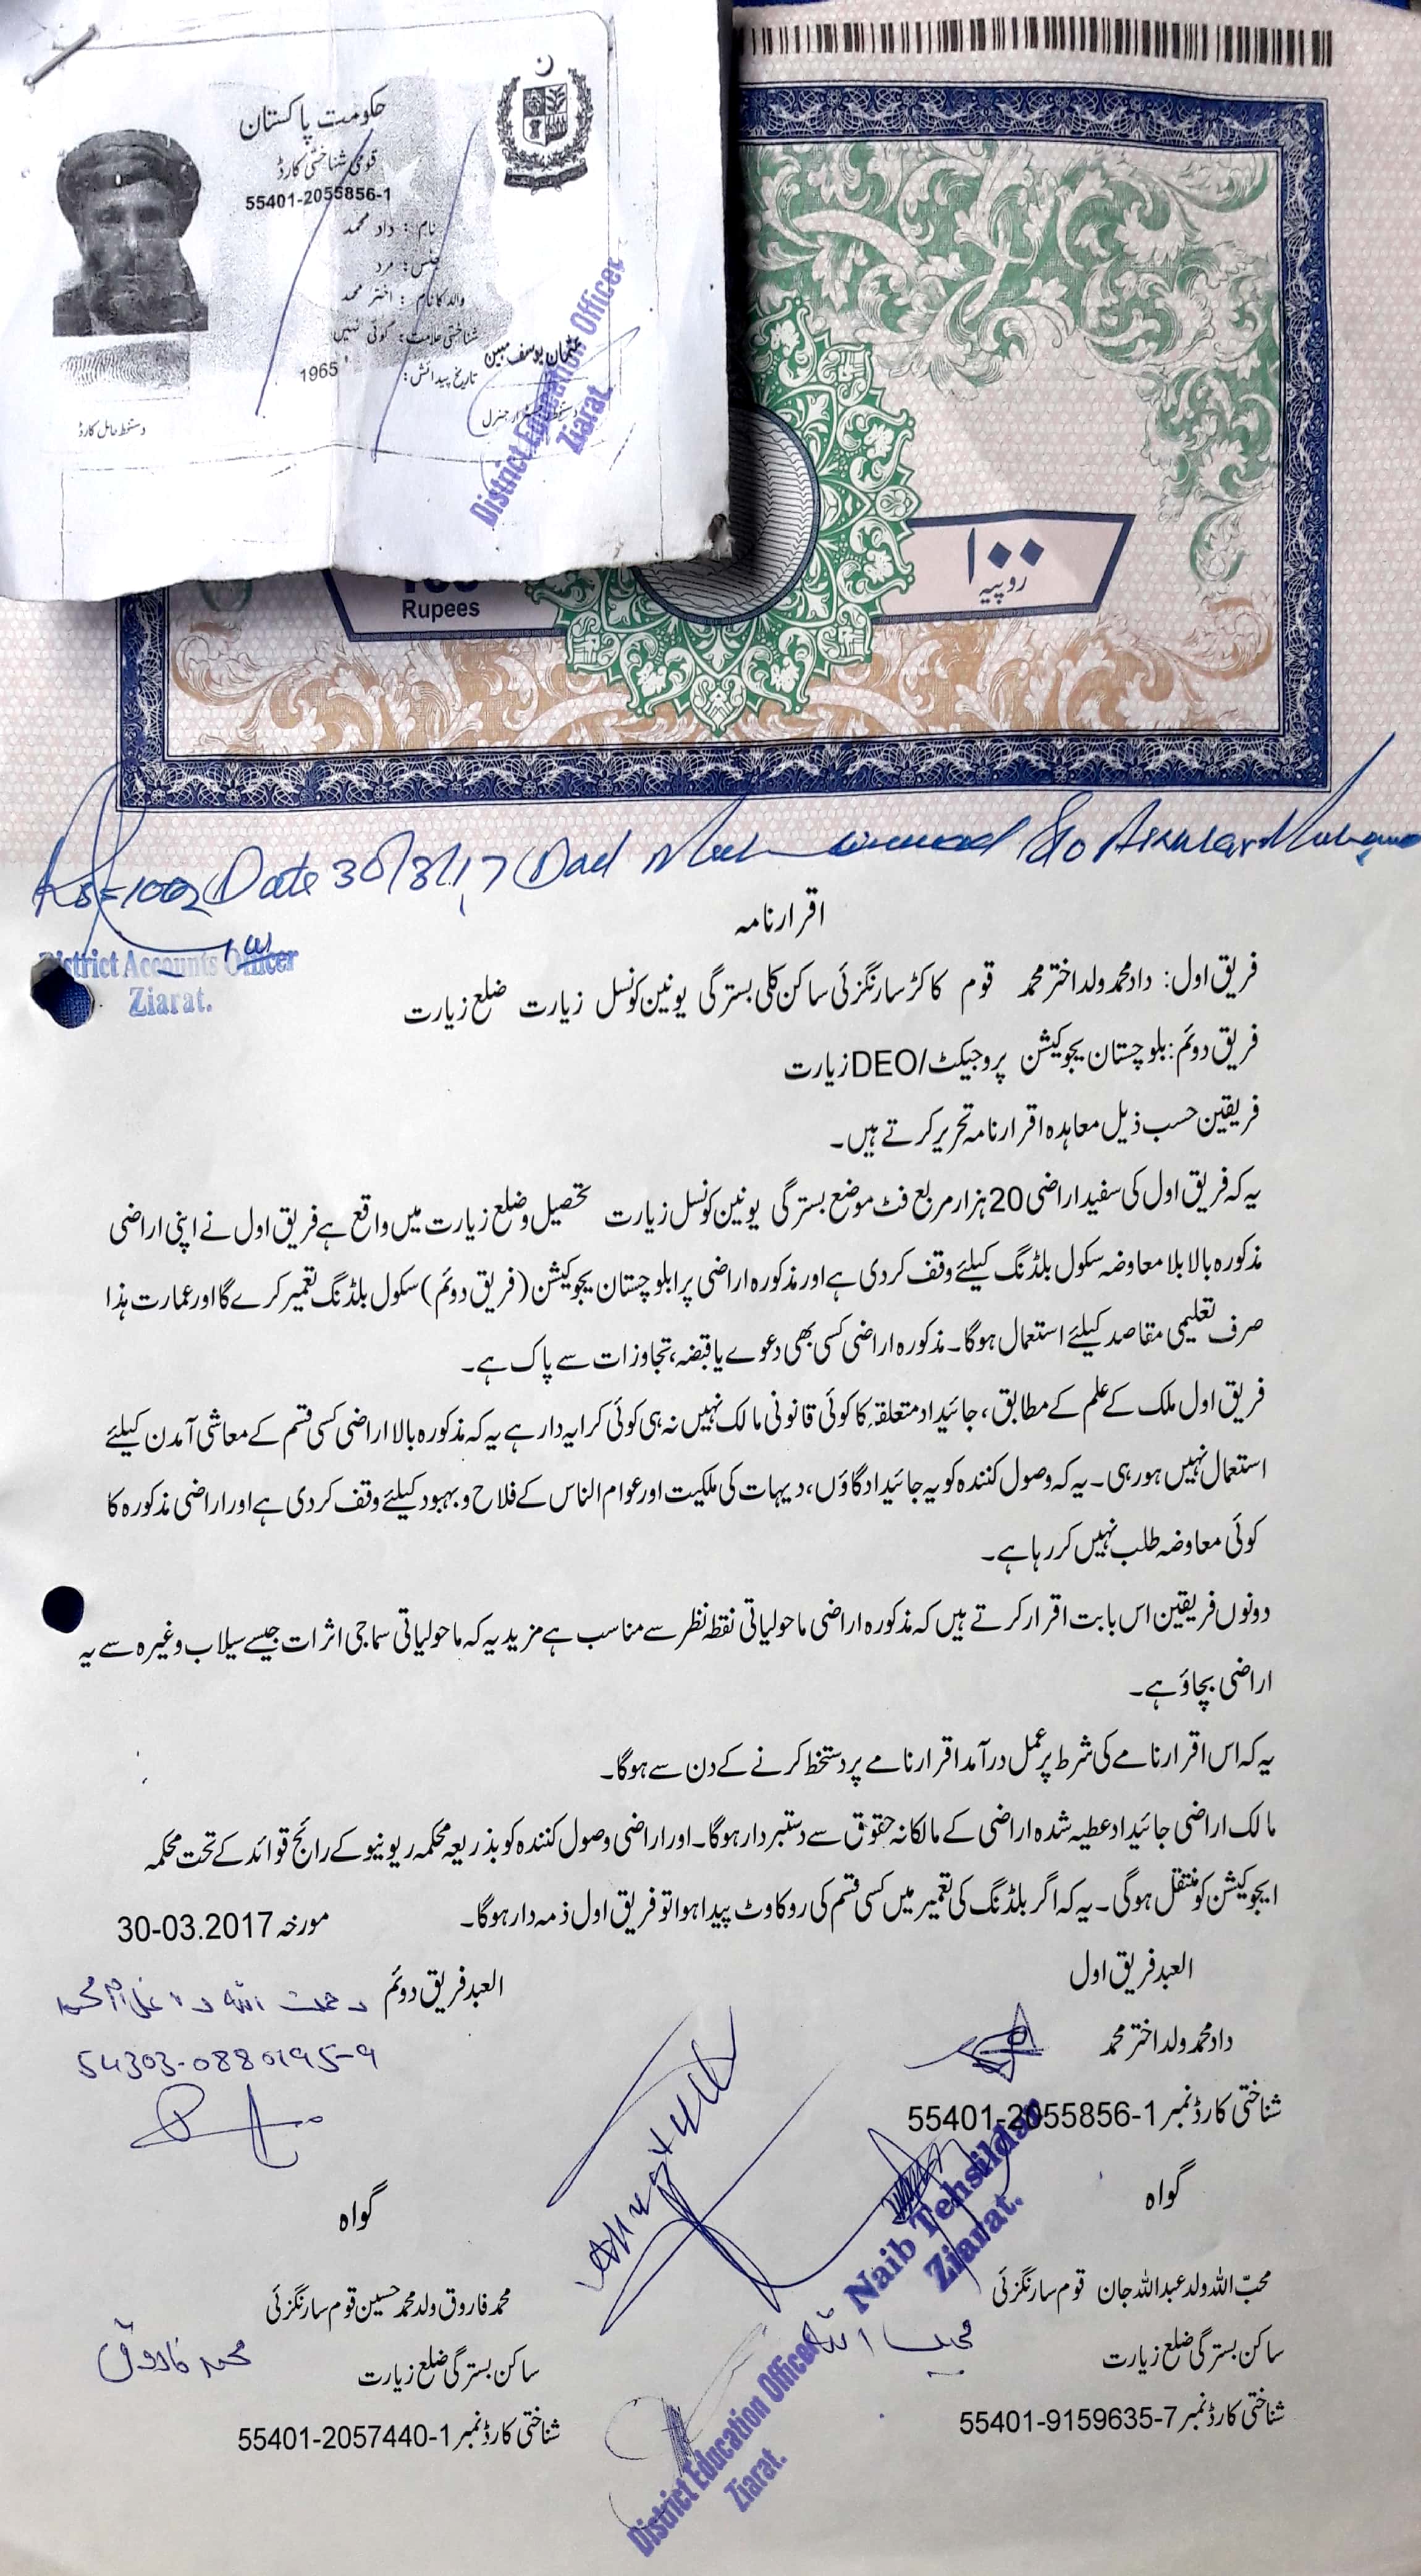 حکومت پاکستان
قومی شناختی کارڈ
55401-2055856-1
نام : داد محمد
جنس: مرد
والد کا نام : اختر محمد
شناختی علامت: کوئی نہیں
تاریخ پیدائش: 1965
عثمان یوسف مبین
دستخط رجسٹرار جنرل
دستخط حامل کارڈ
District Education Officer
Ziarat.
Rupees
۱۰۰
روپیہ
Date 30/3/17 Dad Muhammad S/o Akhtar Muhammad
District Accounts Officer
Ziarat.
اقرارنامہ
فریق اول: داد محمد ولد اختر محمد قوم کاکڑ سارنگزئی ساکن کلی بسترگی یونین کونسل زیارت ضلع زیارت
فریق دوئم: بلوچستان یجوکیشن پروجیکٹ/DEO زیارت
فریقین حسب ذیل معاہدہ اقرارنامہ تحریر کرتے ہیں۔
یہ کہ فریق اول کی سفید اراضی 20 ہزار مربع فٹ موضع بسترگی یونین کونسل زیارت تحصیل وضلع زیارت میں واقع ہے فریق اول نے اپنی اراضی
مذکورہ بالا بلا معاوضہ سکول بلڈنگ کیلئے وقف کردی ہے اور مذکورہ اراضی پر ابلوچستان یجوکیشن (فریق دوئم) سکول بلڈنگ تعمیر کرے گا اور عمارت ہذا
صرف تعلیمی مقاصد کیلئے استعمال ہوگا۔ مذکورہ اراضی کسی بھی دعوے یا قبضہ، تجاوزات سے پاک ہے۔
فریق اول ملک کے علم کے مطابق، جائیداد متعلقہ کا کوئی قانونی مالک نہیں نہ ہی کوئی کرایہ دار ہے یہ کہ مذکورہ بالا اراضی کسی قسم کے معاشی آمدن کیلئے
استعمال نہیں ہورہی۔ یہ کہ وصول کنندہ کو یہ جائیداد گاؤں، دیہات کی ملکیت اور عوام الناس کے فلاح و بہبود کیلئے وقف کردی ہے اور اراضی مذکورہ کا
کوئی معاوضہ طلب نہیں کررہا ہے۔
دونوں فریقین اس بابت اقرار کرتے ہیں کہ مذکورہ اراضی ماحولیاتی نقطہ نظر سے مناسب ہے مزید یہ کہ ماحولیاتی سماجی اثرات جیسے سیلاب وغیرہ سے یہ
اراضی بچاؤ ہے۔
یہ کہ اس اقرارنامے کی شرط پر عمل درآمد اقرارنامے پر دستخط کرنے کے دن سے ہوگا۔
مالک اراضی جائیداد عطیہ شدہ اراضی کے مالکانہ حقوق سے دستبردار ہوگا۔ اور اراضی وصول کنندہ کو بذریعہ محکمہ ریونیو کے رائج قوائد کے تحت محکمہ
ایجوکیشن کو منتقل ہوگی۔ یہ کہ اگر بلڈنگ کی تعمیر میں کسی قسم کی روکاوٹ پیدا ہوا تو فریق اول ذمہ دار ہوگا۔ مورخہ 30-03.2017
العبد فریق اول
داد محمد ولد اختر محمد
شناختی کارڈ نمبر 55401-2055856-1
گواہ
محبّ اللہ ولد عبداللہ جان قوم سارنگزئی
ساکن بسترگی ضلع زیارت
شناختی کارڈ نمبر 55401-9159635-7
محب اللہ
العبد فریق دوئم
رحمت اللہ ولد غلام محمد
54303-0880195-9
گواہ
محمد فاروق ولد محمد حسین قوم سارنگزئی
ساکن بسترگی ضلع زیارت
محمد فاروق
شناختی کارڈ نمبر 55401-2057440-1
Naib Tehsildar
Ziarat.
District Education Officer
Ziarat.